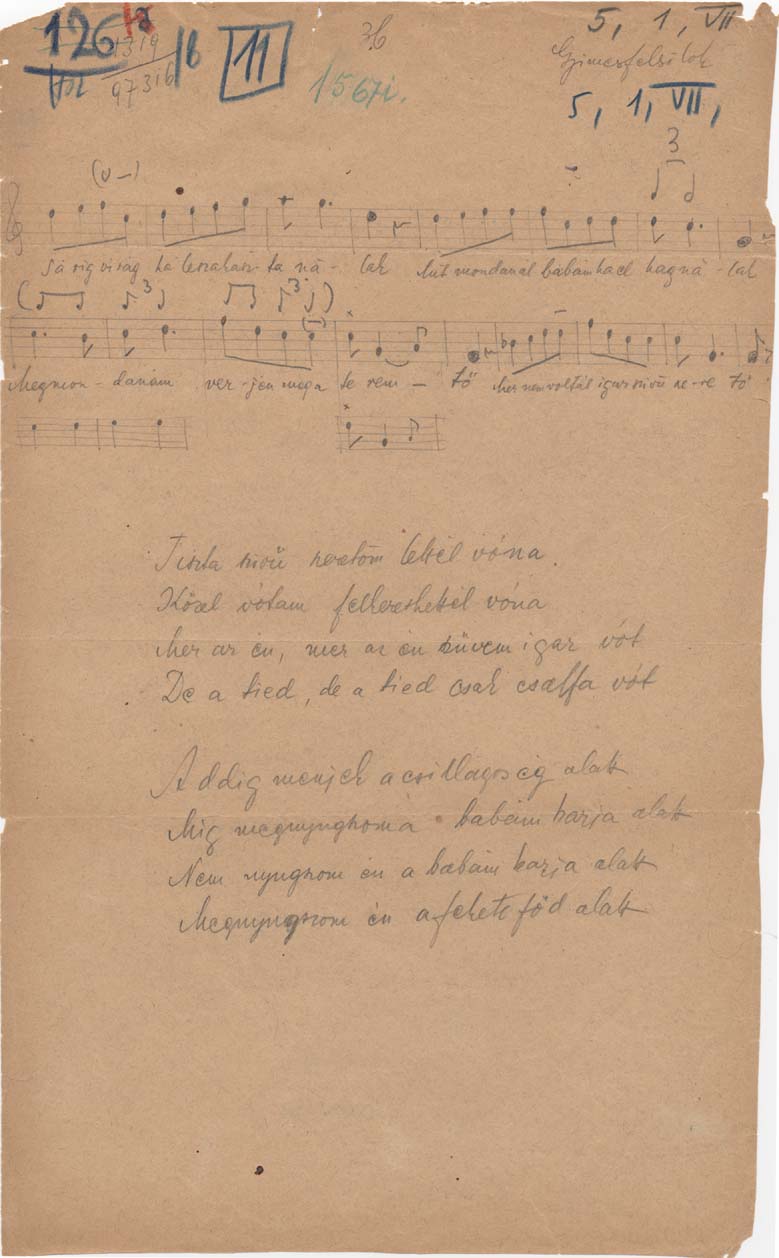 126 12 1319 16 11 36 5, 1, VII
97316 1567i. Gyimesfelsőlok
5, 1, VII,
3
(υ –)
Sárig virág ha leszakaszta ná - lak Mit mondanál babám ha el hagná - lak
3 3
Megmon - danám ver - jen meg a te rem - tő Mer nem voltál igaz szivű sze - re tő
Tiszta szivü szeretőm lettél vóna.
Közel vótam felkereshettél vóna
Mer az én, mer az én szüvem igaz vót
De a tied, de a tied csak csalfa vót
Addig menjek a csillagos ég alatt
Mig megnyugszom a babám karja alatt
Nem nyugszom én a babám karja alatt
Megnyugszom én a fekete föd alatt